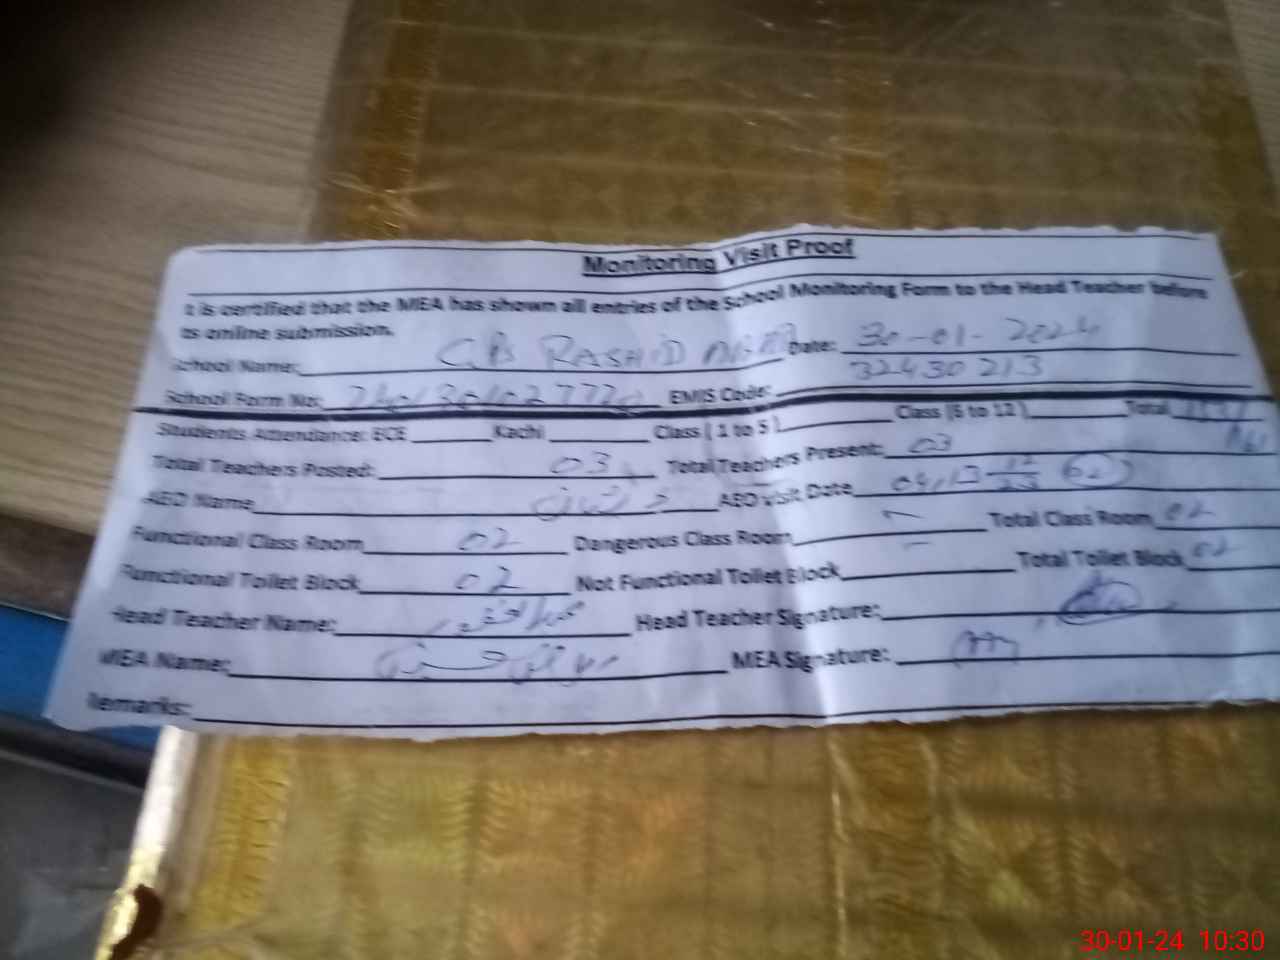 Monitoring Visit Proof
t is certified that the MEA has shown all entries of the School Monitoring Form to the Head Teacher before
ts online submission.
School Name: GPS RASHID Date: 30-01-2024
School Form No: EMIS Code: 32430213
Students Attendance: ECE Kachi Class ( 1 to 5 ) Class (6 to 12 ) Total
Total Teachers Posted: 03 Total Teachers Present: 03
AEO Name AEO Visit Date
Functional Class Room 02 Dangerous Class Room - Total Class Room 02
Functional Toilet Block 02 Not Functional Toilet Block - Total Toilet Block 02
Head Teacher Name: Head Teacher Signature:
MEA Name: MEA Signature:
Remarks:
30-01-24 10:30